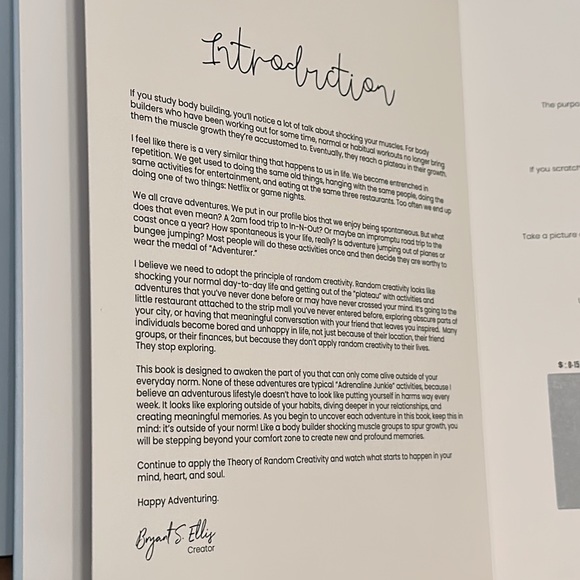 Introduction
If you study body building, you'll notice a lot of talk about shocking your muscles. For body
builders who have been working out for some time, normal or habitual workouts no longer bring
them the muscle growth they're accustomed to. Eventually, they reach a plateau in their growth.
I feel like there is a very similar thing that happens to us in life. We become entrenched in
repetition. We get used to doing the same old things, hanging with the same people, doing the
same activities for entertainment, and eating at the same three restaurants. Too often we end up
doing one of two things: Netflix or game nights.
We all crave adventures. We put in our profile bios that we enjoy being spontaneous. But what
does that even mean? A 2am food trip to In-N-Out? Or maybe an impromptu road trip to the
coast once a year? How spontaneous is your life, really? Is adventure jumping out of planes or
bungee jumping? Most people will do these activities once and then decide they are worthy to
wear the medal of "Adventurer."
I believe we need to adopt the principle of random creativity. Random creativity looks like
shocking your normal day-to-day life and getting out of the "plateau" with activities and
adventures that you've never done before or may have never crossed your mind. It's going to the
little restaurant attached to the strip mall you've never entered before, exploring obscure parts of
your city, or having that meaningful conversation with your friend that leaves you inspired. Many
individuals become bored and unhappy in life, not just because of their location, their friend
groups, or their finances, but because they don't apply random creativity to their lives.
They stop exploring.
This book is designed to awaken the part of you that can only come alive outside of your
everyday norm. None of these adventures are typical "Adrenaline Junkie" activities, because I
believe an adventurous lifestyle doesn't have to look like putting yourself in harms way every
week. It looks like exploring outside of your habits, diving deeper in your relationships, and
creating meaningful memories. As you begin to uncover each adventure in this book, keep this in
mind: it's outside of your norm! Like a body builder shocking muscle groups to spur growth, you
will be stepping beyond your comfort zone to create new and profound memories.
Continue to apply the Theory of Random Creativity and watch what starts to happen in your
mind, heart, and soul.
Happy Adventuring.
Bryant S. Ellis
Creator
The purpo
If you scratch
Take a picture